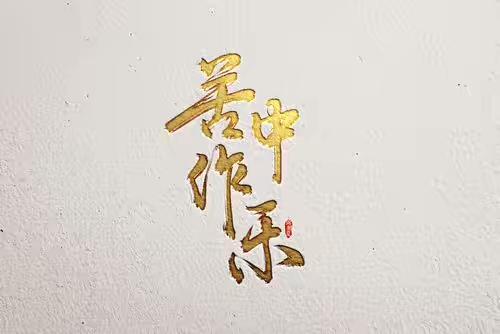 苦中作乐